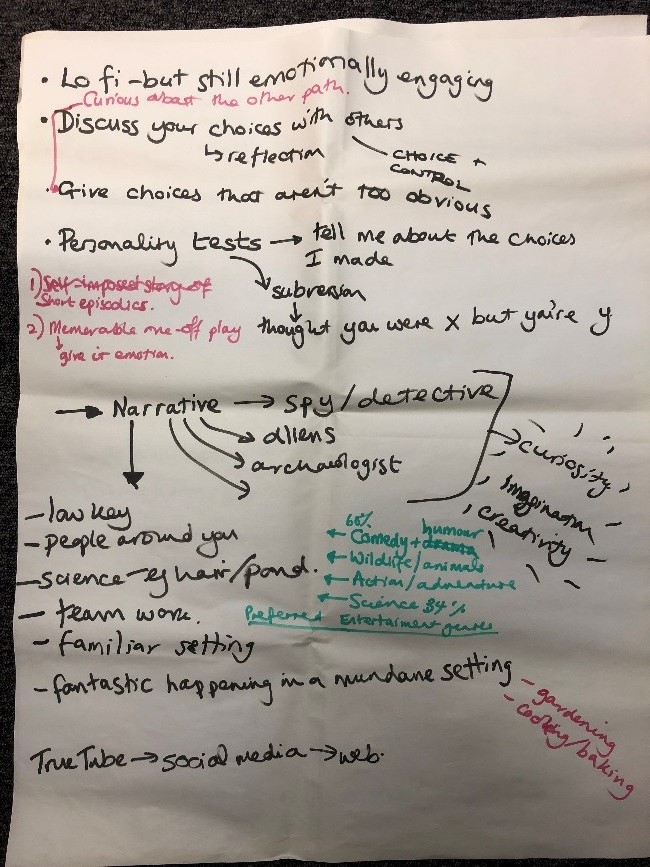 • Lo fi - but still emotionally engaging
Curious about the other path.
• Discuss your choices with others
↳ reflection
CHOICE +
CONTROL
• Give choices that aren't too obvious
• Personality tests → tell me about the choices
I made
subversion
↓
thought you were x but you're y
1) Self-imposed story of
short episodics.
2) Memorable one-off play
↓ give it emotion.
→ Narrative → Spy/detective
aliens
archaeologist
→ curiosity
imagination
creativity
- low key
- people around you
- science - eg hair/pond.
- team work.
- familiar setting
- fantastic happening in a mundane setting
- gardening
- cooking/baking
60%
humour
← Comedy + drama
← Wildlife/animals
← Action/adventure
← Science 34%
Preferred Entertaiment genres
TrueTube → social media → web.